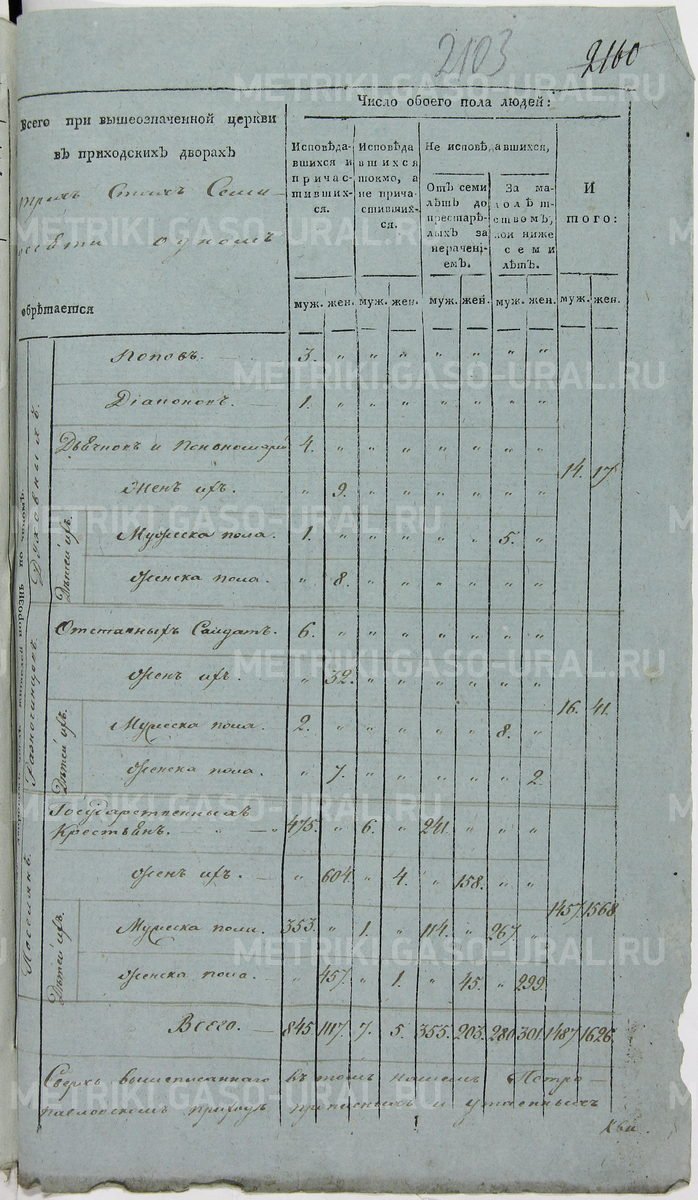 2103 2160
METRIKI.GASO-URAL.RU
Число обоего пола людей:
Всего при вышеозначенной церкви
въ приходскихъ дворахъ
трехъ Стахъ Семи-
десяти одномъ
обрѣтается
Исповѣда
вшихся и
причас-
тивших-
ся.
Исповѣда
вшихся
токмо, а
не прича
стивших-
ся.
Не исповѣдавшихся,
Отъ семи
лѣтъ до
престарѣ-
лыхъ за
нераченї-
емъ.
За ма-
лолѣт-
ствомъ,
кои ниже
семи
лѣтъ.
И
того:
муж. жен. муж. жен. муж. жен. муж. жен. муж. жен.
Духовныхъ.
Поповъ. 3. „ „ „ „ „ „ „
Діаконовъ. 1. „ „ „ „ „ „ „
Дьячковъ и Пономарей 4. „ „ „ „ „ „ „
14. 17.
Женъ ихъ. „ 9. „ „ „ „ „ „
Дѣтей ихъ.
Мужеска пола. 1. „ „ „ „ „ 5. „
Женска пола. „ 8. „ „ „ „ „ „
Разночинцевъ.
Отставныхъ Салдатъ. 6. „ „ „ „ „ „ „
Женъ ихъ. „ 32. „ „ „ „ „ „
16. 41.
Дѣтей ихъ.
Мужеска пола. 2. „ „ „ „ „ 8. „
Женска пола. „ 7. „ „ „ „ „ 2.
Поселянъ.
Государственныхъ
Крестьянъ. 475. „ 6. „ 241. „ „ „
Женъ ихъ. „ 604. „ 4. „ 158. „ „
1457. 1568.
Дѣтей ихъ.
Мужеска пола. 353. „ 1. „ 114. „ 267. „
Женска пола. „ 457. „ 1. „ 45. „ 299.
Всего. 845. 1117. 7. 5. 355. 203. 280. 301. 1487. 1626.
Сверхъ вышеписаннаго въ томъ нашемъ Петро-
павловскомъ приходѣ прописныхъ и утаенныхъ